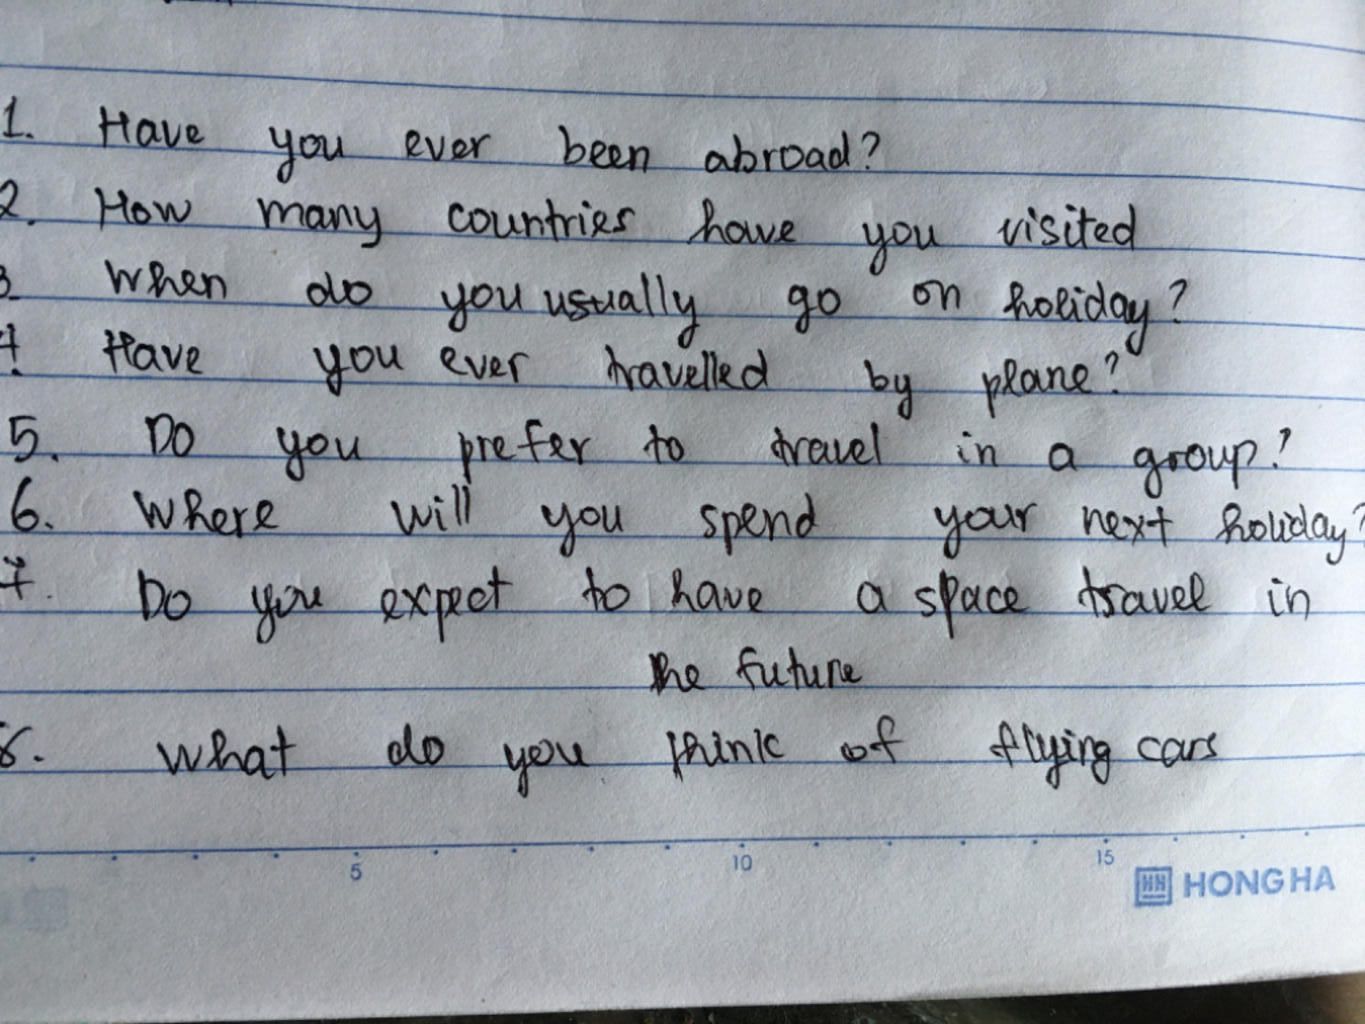 1. Have you ever been abroad?
2. How many countries have you visited
3. When do you usually go on holiday?
4. Have you ever travelled by plane?
5. Do you prefer to travel in a group?
6. Where will you spend your next holiday?
7. Do you expect to have a space travel in
the future
8. What do you think of flying cars
5 10 15
HONG HA